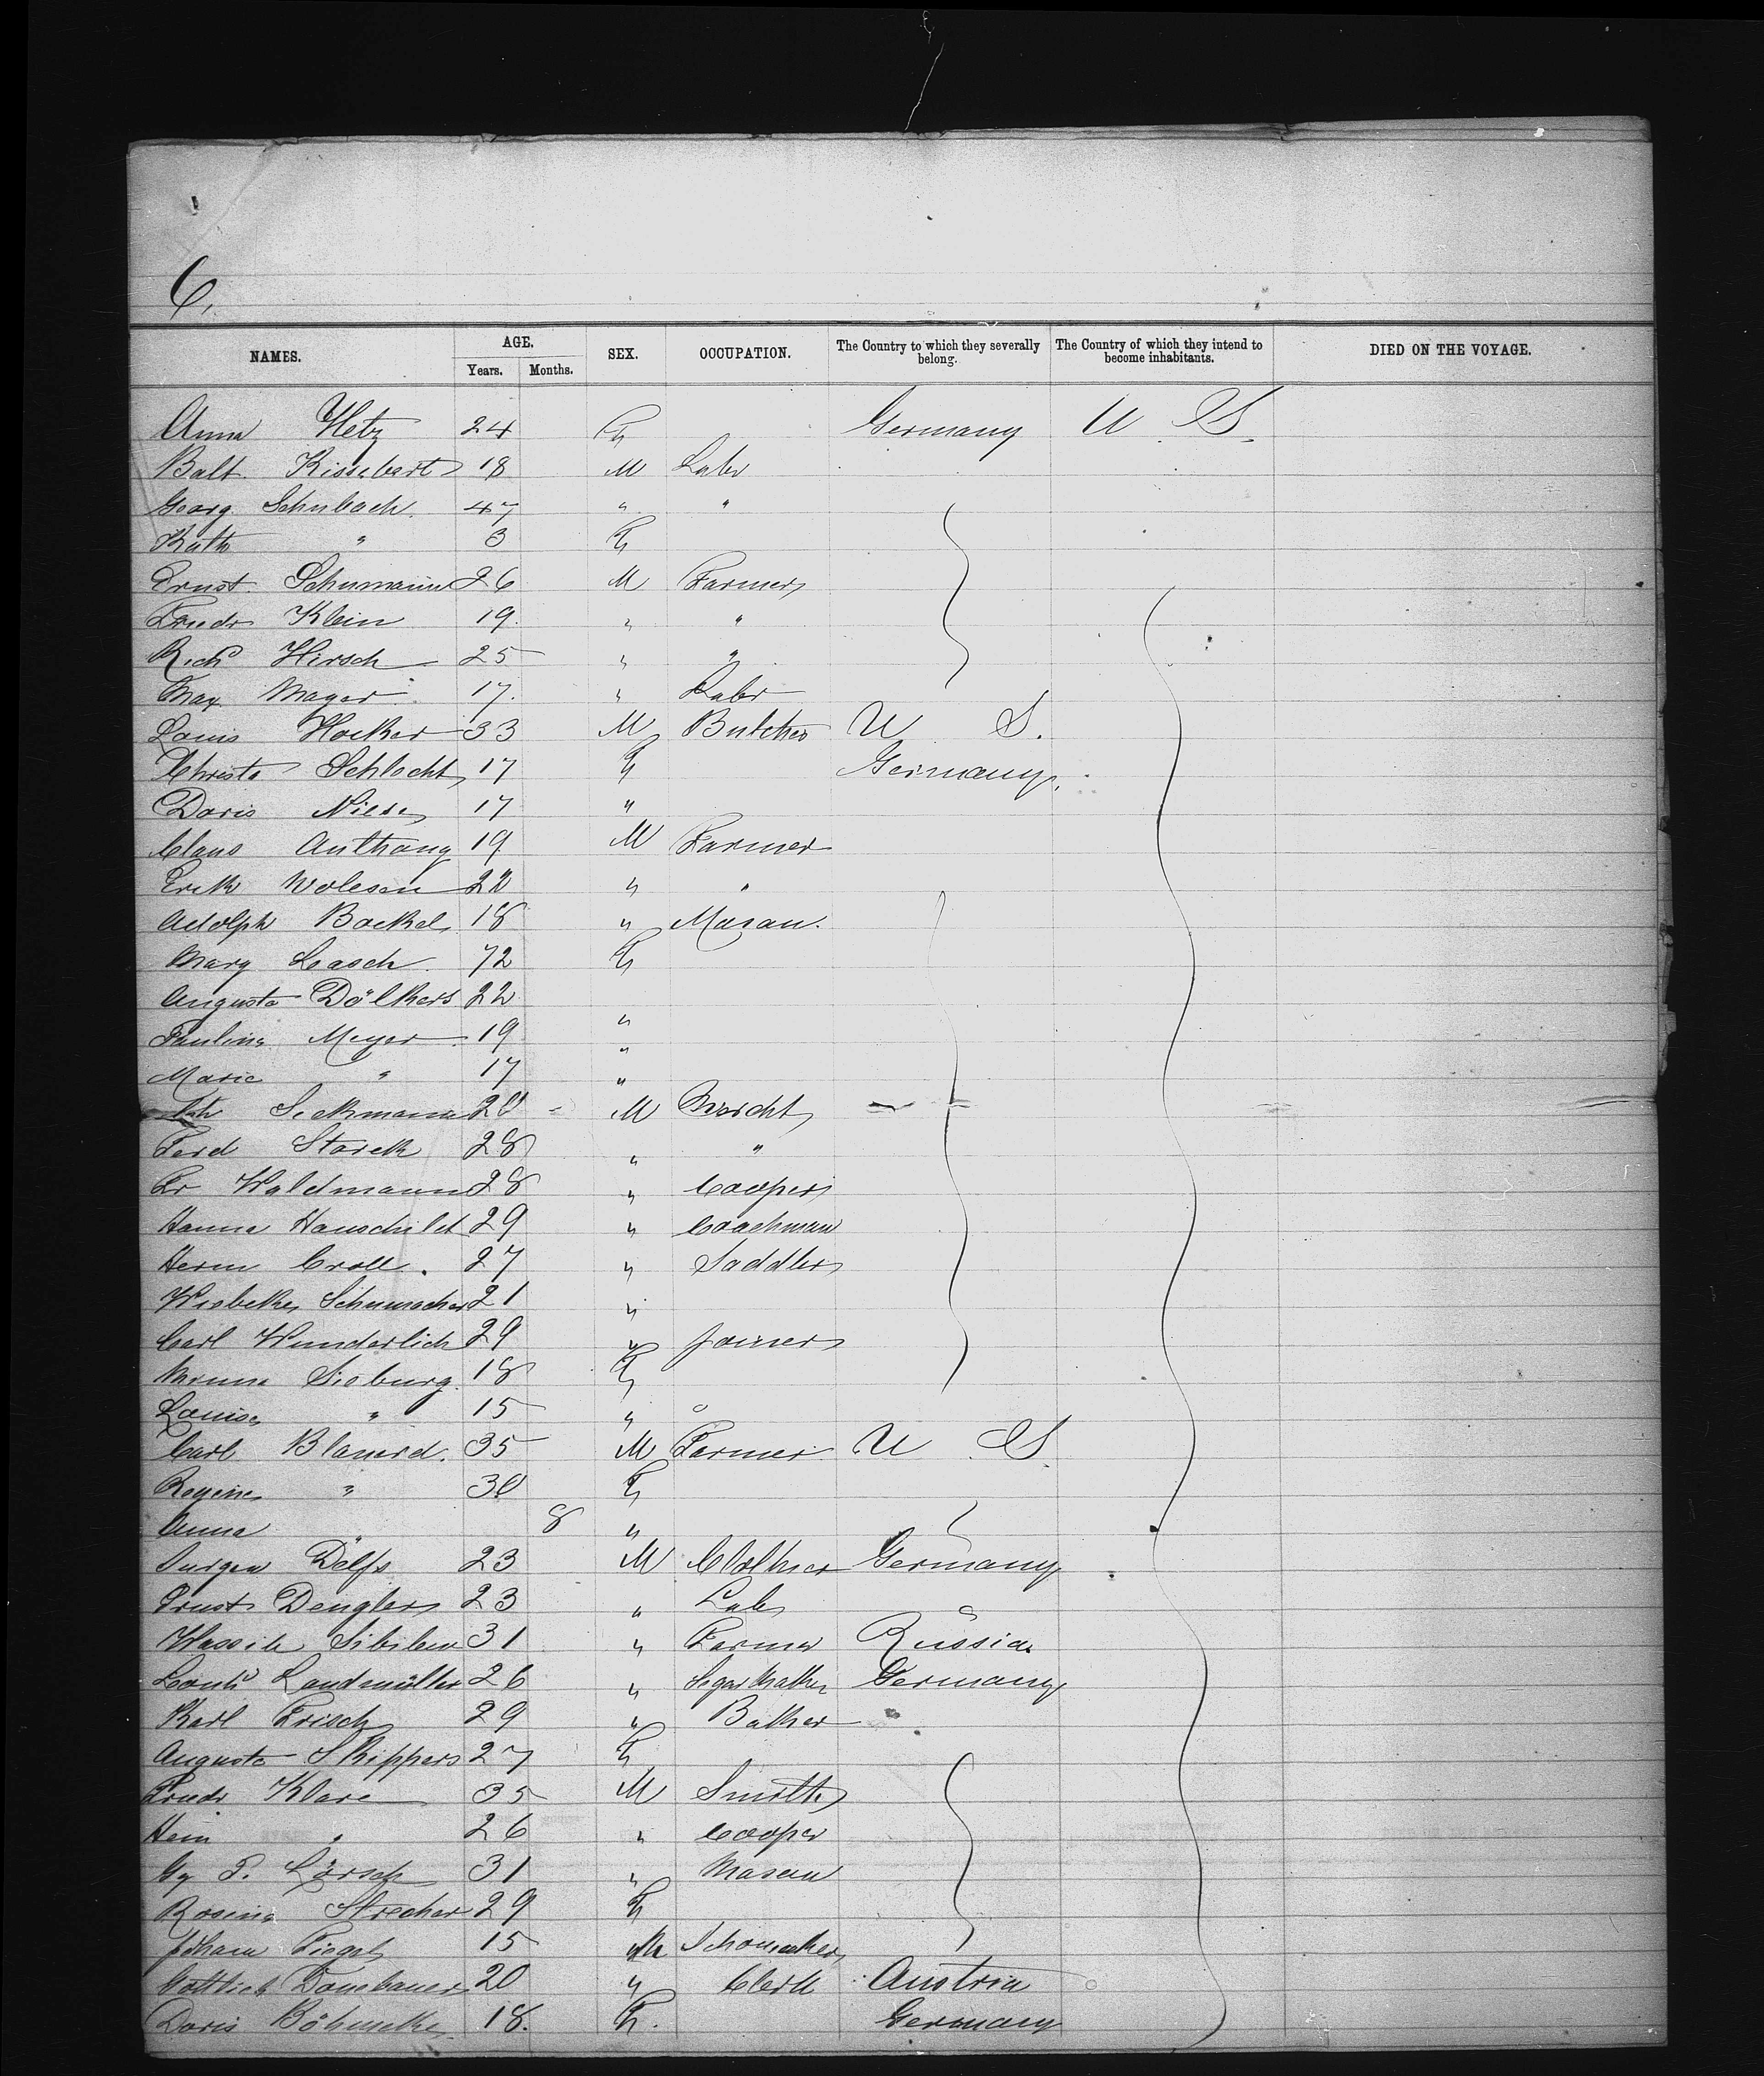 6.
NAMES. AGE. SEX. OCCUPATION. The Country to which they severally belong. The Country of which they intend to become inhabitants. DIED ON THE VOYAGE.
Years. Months.
Anna Hetz 24 F Germany U S.
Balt. Kissebert 18 M Labr
Georg Schubach 47 " "
Kath " 3 F
Ernst Schumann 26 M Farmer
Friedr Klein 19 " "
Rich Hirsch 25 " "
Max Mayer 17 " Labr
Louis Hocker 33 M Butcher U S.
Christe Schlecht 17 F Germany
Doris Niese 17 "
Claus Anthony 19 M Farmer
Erik Wolesen 22 " "
Adolph Backel 18 " Mason.
Marg Casch 72 F
Augusta Dölkers 22 "
Pauline Meyer 19 "
Marie " 17 "
Seekmann 28 M
Ferd Starck 28 " "
Fr Waldmann 28 " Cooper
Hanna Hauschildt 29 " Coachman
Herm Croll. 27 " Saddler
Wiebeke Schumacher 21 "
Carl Wunderlich 29 " Joiner
Minna Sieburg 18 F
Louise " 15 "
Carl Blanerd. 35 M Farmer U S
Regine " 30 F
Anna " 8 "
Jurgen Delfs 23 M Clothier Germany
Ernst Dengler 23 " Lab
Wassili 31 " Farmer Russia
Landmüller 26 " Segar Maker Germany
Karl Frisch 29 " Baker "
Augusta Skippers 27 F
Friedr Klare 35 M Smith
Hein " 26 " Cooper
Gg P. Lörsch 31 " Mason
Rosina Strecher 29 F
Johann Fiegel 15 M Shoemaker
Gottlieb Donebauer 20 " Clerk Austria
Doris Böhmcke 18. F. Germany